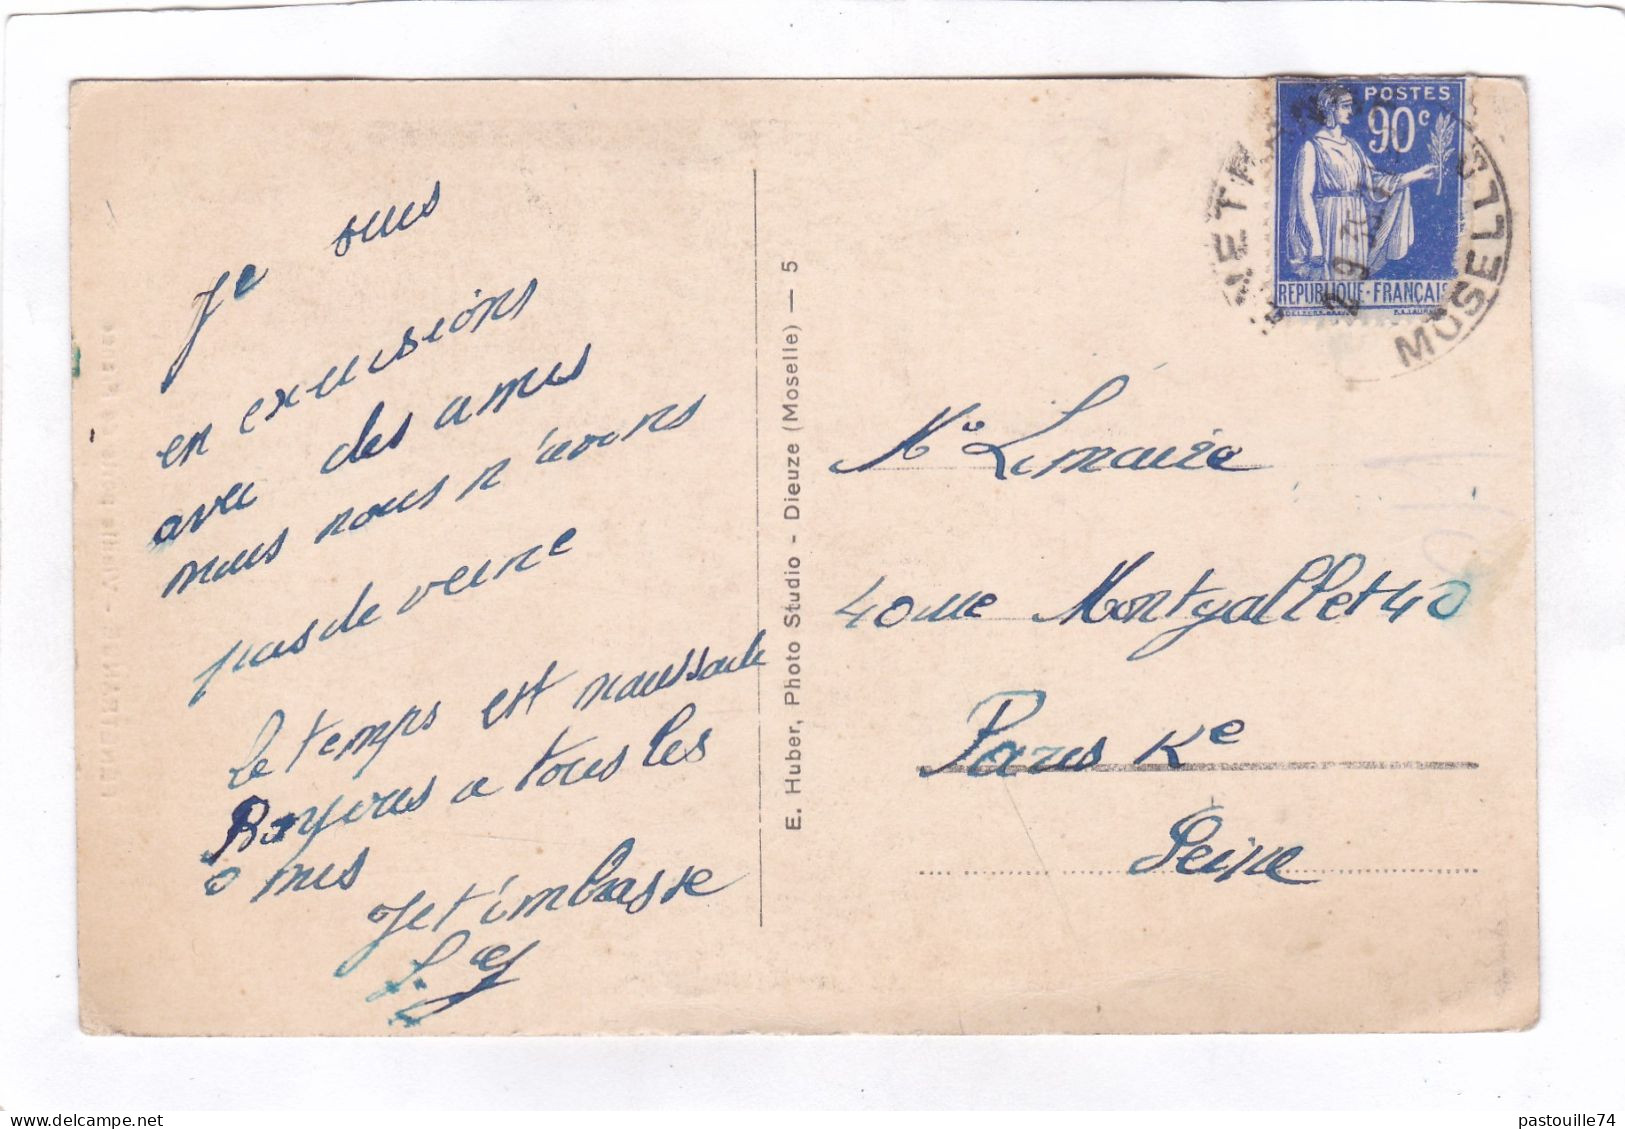 Je suis
en excursions
avec des amis
mais nous n'avons
pas de veine
le temps est maussade
Bonjours a tous les
amis
Je t'embrasse
E. Huber, Photo Studio - Dieuze (Moselle) — 5
POSTES
90c
REPUBLIQUE-FRANÇAISE
MOSELLE
Mr Lemaire
40 rue Montgallet 40
Paris
Seine
pastouille74